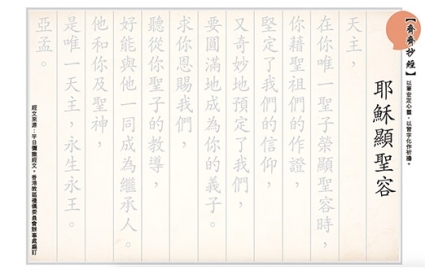 【齊齊抄經】
以筆安定心靈，以習字化作祈禱。
耶穌顯聖容
天主，
在你唯一聖子榮顯聖容時，
你藉聖祖們的作證，
堅定了我們的信仰，
又奇妙地預定了我們，
要圓滿地成為你的義子。
求你恩賜我們，
聽從你聖子的教導，
好能與他一同成為繼承人。
他和你及聖神，
是唯一天主，永生永王。
亞孟。
經文來源：平日彌撒經文。香港教區禮儀委員會辦事處編訂